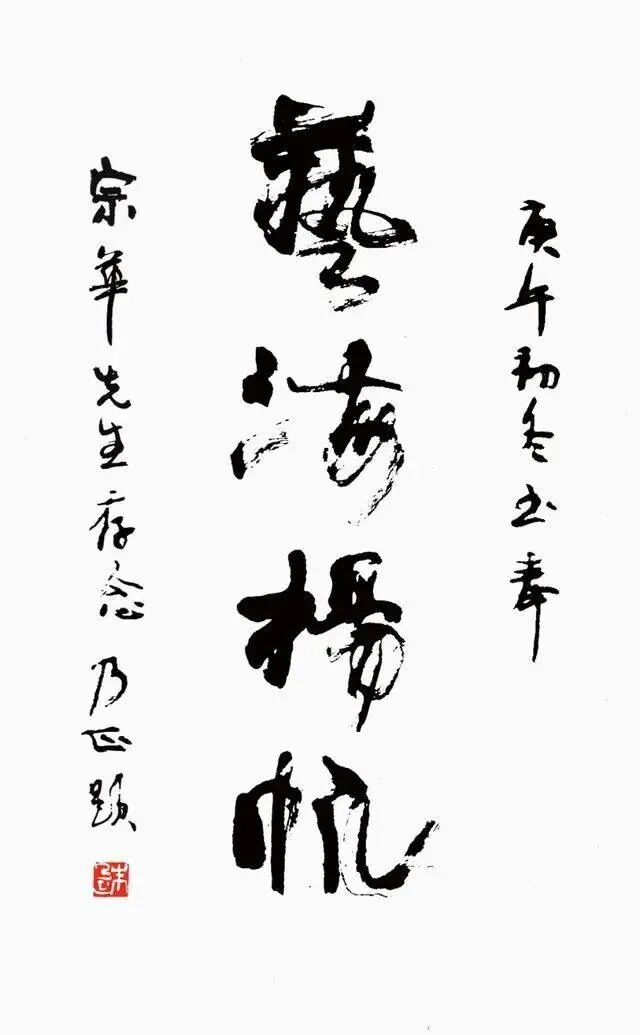 庚午初冬书奉
藝海揚帆
宗華先生存念 乃正題